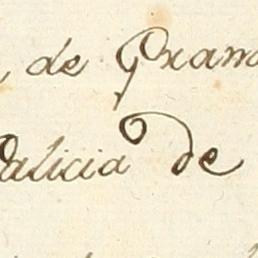 de Gram
Galicia de